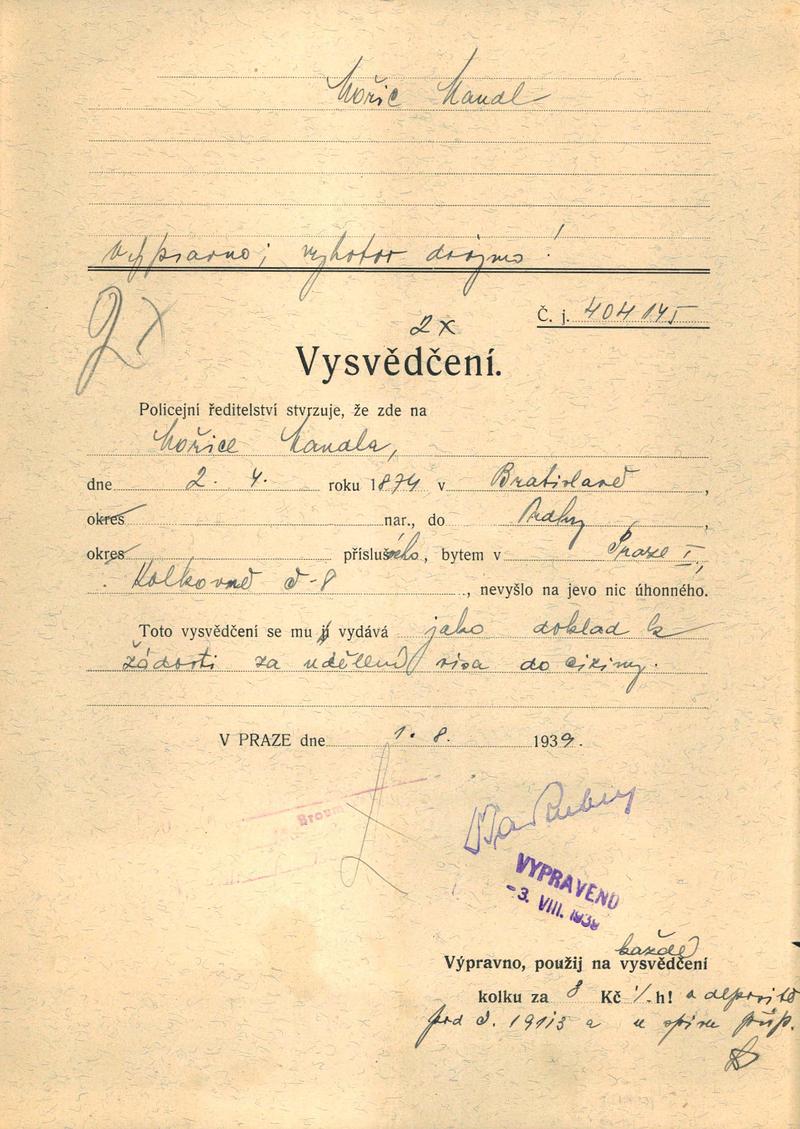 Mořic Mandl
Výpravno; vyhotov dvojmo!
2x
Č. j. 404145
2x
Vysvědčení.
Policejní ředitelství stvrzuje, že zde na
Mořice Mandla,
dne 2. 4. roku 1874 v Bratislavě,
okres nar., do Prahy,
okres příslušného, bytem v Praze I,
Kolkovně č-8, nevyšlo na jevo nic úhonného.
Toto vysvědčení se mu jí vydává jako doklad k
žádosti za udělení visa do ciziny.
V PRAZE dne 1. 8. 1939.
Broum
VYPRAVENO
-3. VIII. 1939
každé
Výpravno, použij na vysvědčení
kolku za 8 Kč h! a deposito
pod č. 19113 a u spisu přip.